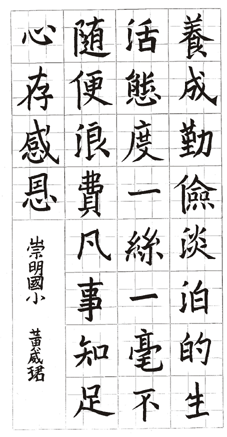 養成勤儉淡泊的生
活態度一絲一毫不
隨便浪費凡事知足
心存感恩
崇明國小 黃葳珺